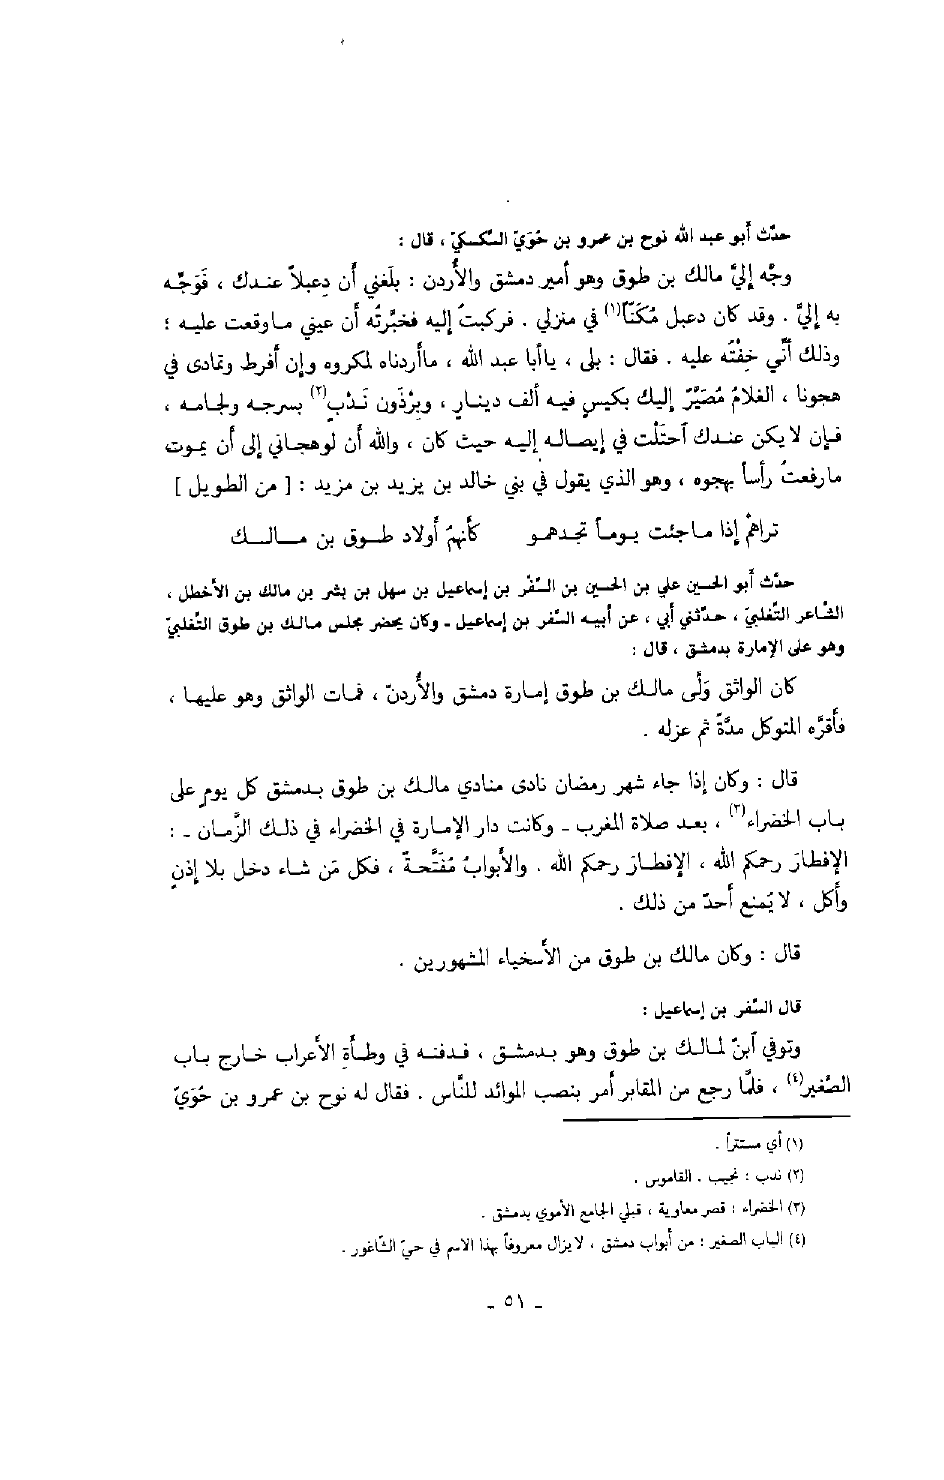 حدّث أبو عبد الله نوح بن عمرو بن حُوَيّ السَّكسكيّ ، قال :
وجَّه إليَّ مالك بن طوق وهو أمير دمشق والأُردن : بلَغني أن دِعبلاً عندك ، فَوَجِّه
به إليَّ . وقد كان دعبل مُكَنّاً(١) في منزلي . فركبتُ إليه فخبَّرتُه أن عيني ماوقعت عليه ؛
وذلك أنّي خِفْتُه عليه . فقال : بلى ، ياأبا عبد الله ، ماأردناه لمكروه وإن أفرط وتمادى في
هجونا ، الغلامُ مُصَيَّرٌ إليك بكيسٍ فيه ألف دينارٍ ، وبِرْذَون نَدْبٍ(٢) بسرجه ولجامه ،
فإن لا يكن عندك آحتَلْت في إيصاله إليه حيث كان ، والله أن لوهجاني إلى أن يموت
مارفعتُ رأساً بهجوه ، وهو الذي يقول في بني خالد بن يزيد بن مزيد : [ من الطويل ]
تراهمْ إذا ماجئت يوماً تجدهمو كأنهمُ أولاد طوق بن مالك
حدّث أبو الحسين علي بن الحسين بن السَّفْر بن إسماعيل بن سهل بن بشر بن مالك بن الأخطل ،
الشاعر التَّغلبيّ ، حدّثني أبي ، عن أبيه السَّفر بن إسماعيل ـ وكان يحضر مجلس مالك بن طوق التَّغلبيّ
وهو على الإمارة بدمشق ، قال :
كان الواثق وَلَّى مالك بن طوق إمارة دمشق والأُردنّ ، فمات الواثق وهو عليها ،
فأقرَّه المتوكل مدَّةً ثم عزله .
قال : وكان إذا جاء شهر رمضان نادى منادي مالك بن طوق بدمشق كل يوم على
باب الخضراء(٣) ، بعد صلاة المغرب ـ وكانت دار الإمارة في الخضراء في ذلك الزَّمان ـ :
الإفطارَ رحمكم الله ، الإفطارَ رحمكم الله . والأبوابُ مُفَتَّحةٌ ، فكل مَن شاء دخل بلا إذنٍ
وأكل ، لا يُمنع أحدٌ من ذلك .
قال : وكان مالك بن طوق من الأسخياء المشهورين .
قال السَّفر بن إسماعيل :
وتوفي آبنٌ لمالك بن طوق وهو بدمشق ، فدفنه في وطأة الأعراب خارج باب
الصَّغير(٤) ، فلمّا رجع من المقابر أمر بنصب الموائد للنَّاس . فقال له نوح بن عمرو بن حُوَيّ
(١) أي مستتراً .
(٢) ندب : نجيب . القاموس .
(٣) الخضراء : قصر معاوية ، قبلي الجامع الأموي بدمشق .
(٤) الباب الصغير : من أبواب دمشق ، لا يزال معروفاً بهذا الاسم في حيّ الشّاغور .
ـ ٥١ ـ